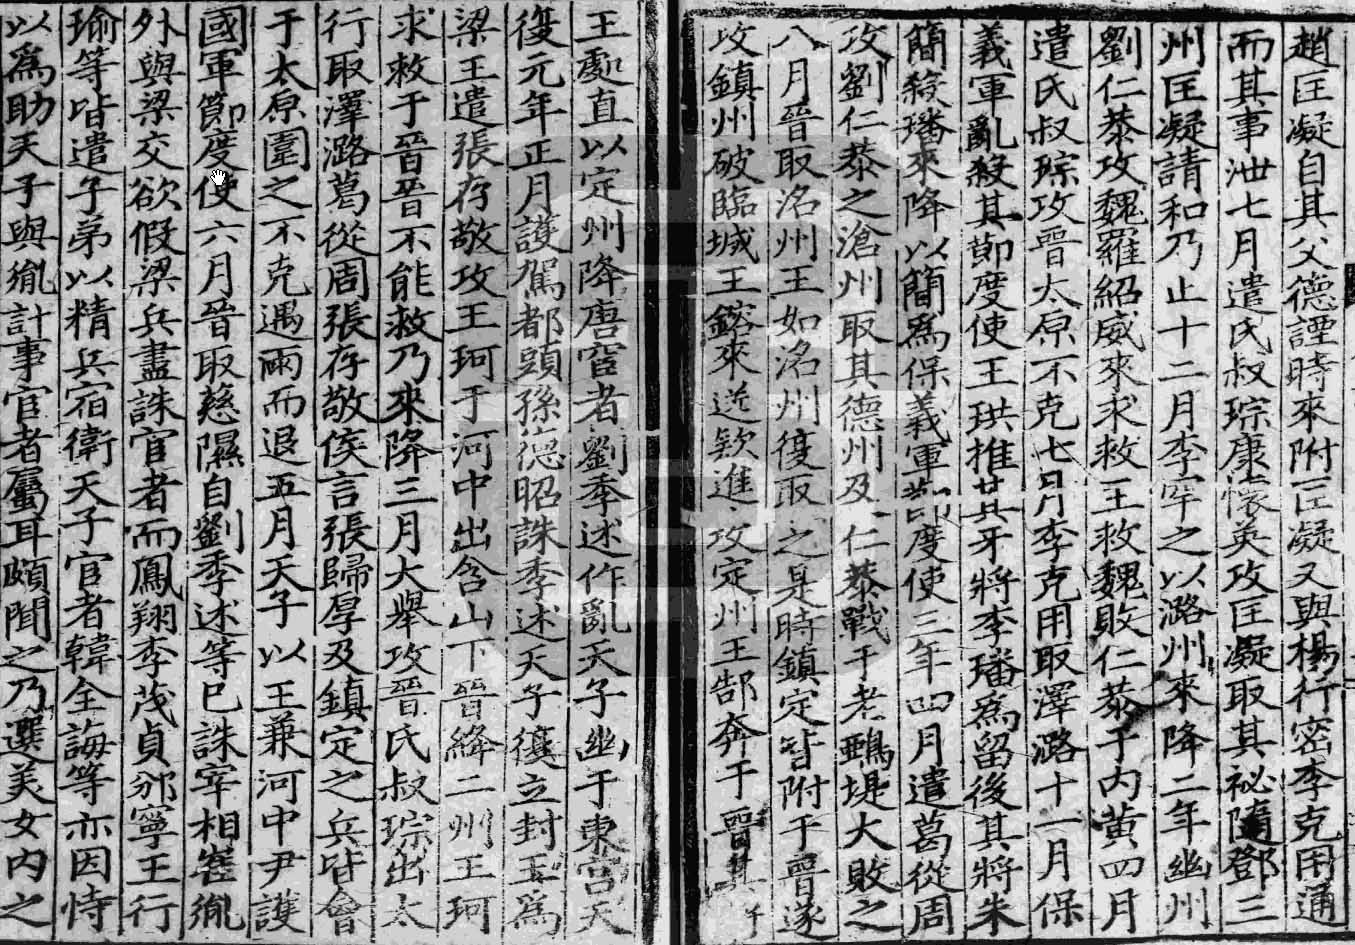 趙匡凝自其父德諲時來附匡凝又與楊行密李克用通
而其事泄七月遣氏叔琮康懷英攻匡凝取其祕隨鄧三
州匡凝請和乃止十二月李罕之以潞州來降二年幽州
劉仁恭攻魏羅紹威來求救王救魏敗仁恭于內黃四月
遣氏叔琮攻晉太原不克七月李克用取澤潞十一月保
義軍亂殺其節度使王珙推其牙將李璠爲留後其將朱
簡殺璠來降以簡爲保義軍節度使三年四月遣葛從周
攻劉仁恭之滄州取其德州及仁恭戰于老鵶堤大敗之
八月晉取洺州王如洺州復取之是時鎮定皆附于晉遂
攻鎮州破臨城王鎔來送款進攻定州王郜奔于晉其
王處直以定州降唐宦者劉季述作亂天子幽于東宮天
復元年正月護駕都頭孫德昭誅季述天子復立封王爲
梁王遣張存敬攻王珂于河中出含山下晉絳二州王珂
求救于晉晉不能救乃來降三月大舉攻晉氏叔琮出太
行取澤潞葛從周張存敬侯言張歸厚及鎮定之兵皆會
于太原圍之不克遇雨而退五月天子以王兼河中尹護
國軍節度使六月晉取慈隰自劉季述等已誅宰相崔胤
外與梁交欲假梁兵盡誅宦者而鳳翔李茂貞邠寧王行
瑜等皆遣子弟以精兵宿衛天子宦者韓全誨等亦因恃
以爲助天子與胤計事宦者屬耳頗聞之乃選美女內之